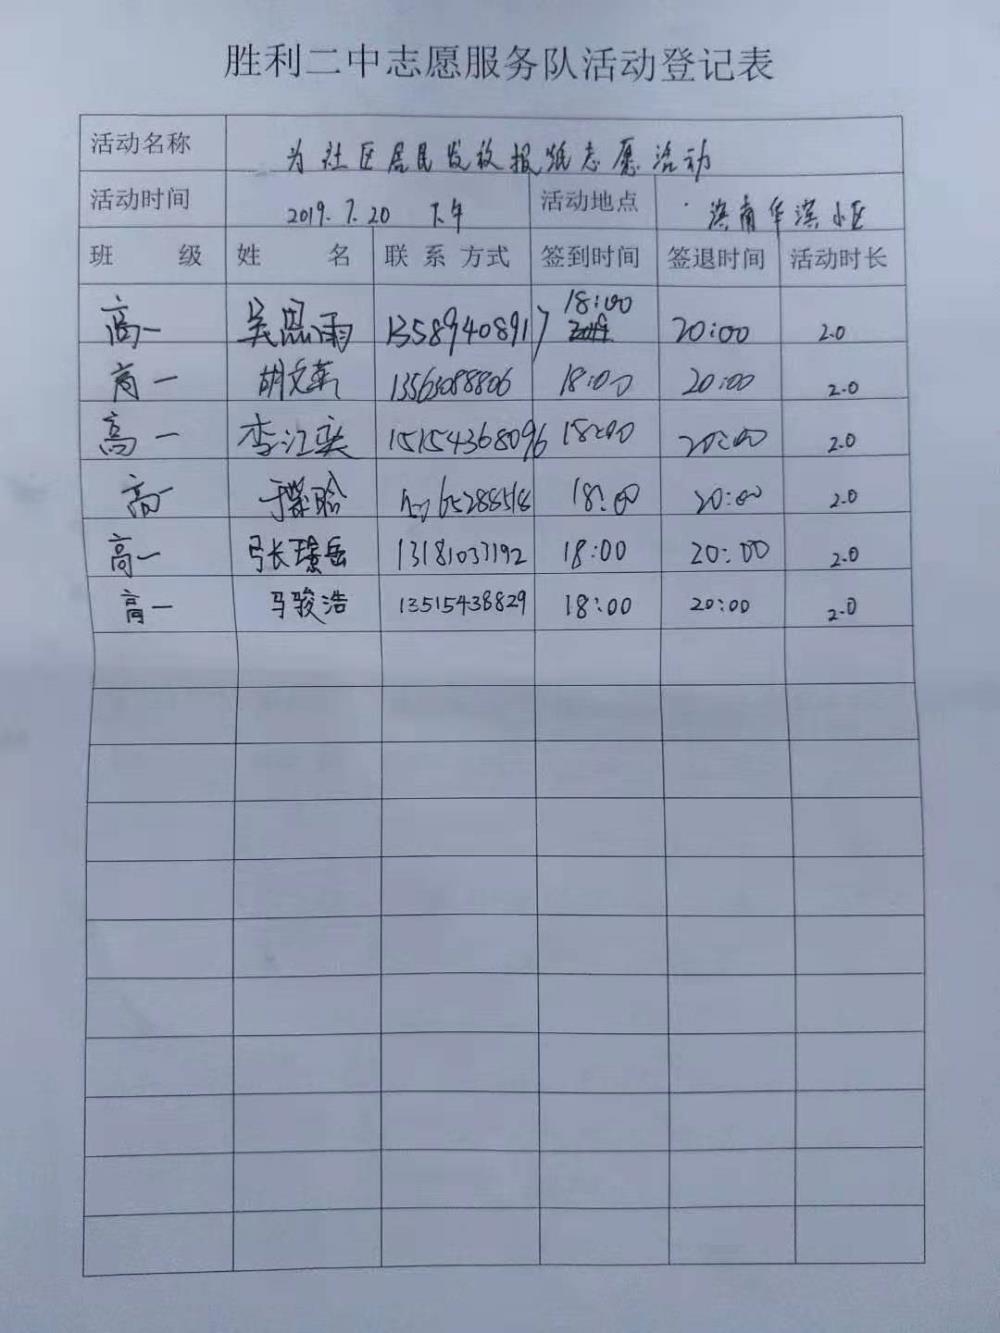 胜利二中志愿服务队活动登记表
活动名称 为社区居民发放报纸志愿活动
活动时间 2019.7.20 下午 活动地点 滨南华滨小区
班 级 姓 名 联 系 方式 签到时间 签退时间 活动时长
高一 吴思雨 13589408917 18:00 20:00 2.0
高一 胡文 13563088806 18:00 20:00 2.0
高一 李江奕 15154368096 18:00 20:00 2.0
高一 18:00 20:00 2.0
高一 张璟岳 13181037192 18:00 20:00 2.0
高一 马骏浩 13515438829 18:00 20:00 2.0